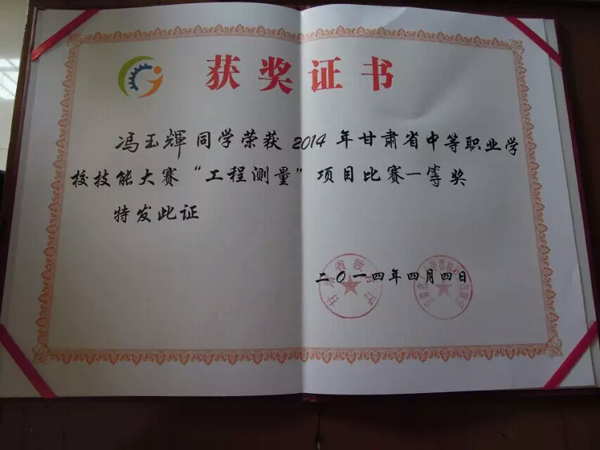 获奖证书
冯玉辉同学荣获2014年甘肃省中等职业学
校技能大赛“工程测量”项目比赛一等奖
特发此证
二〇一四年四月四日